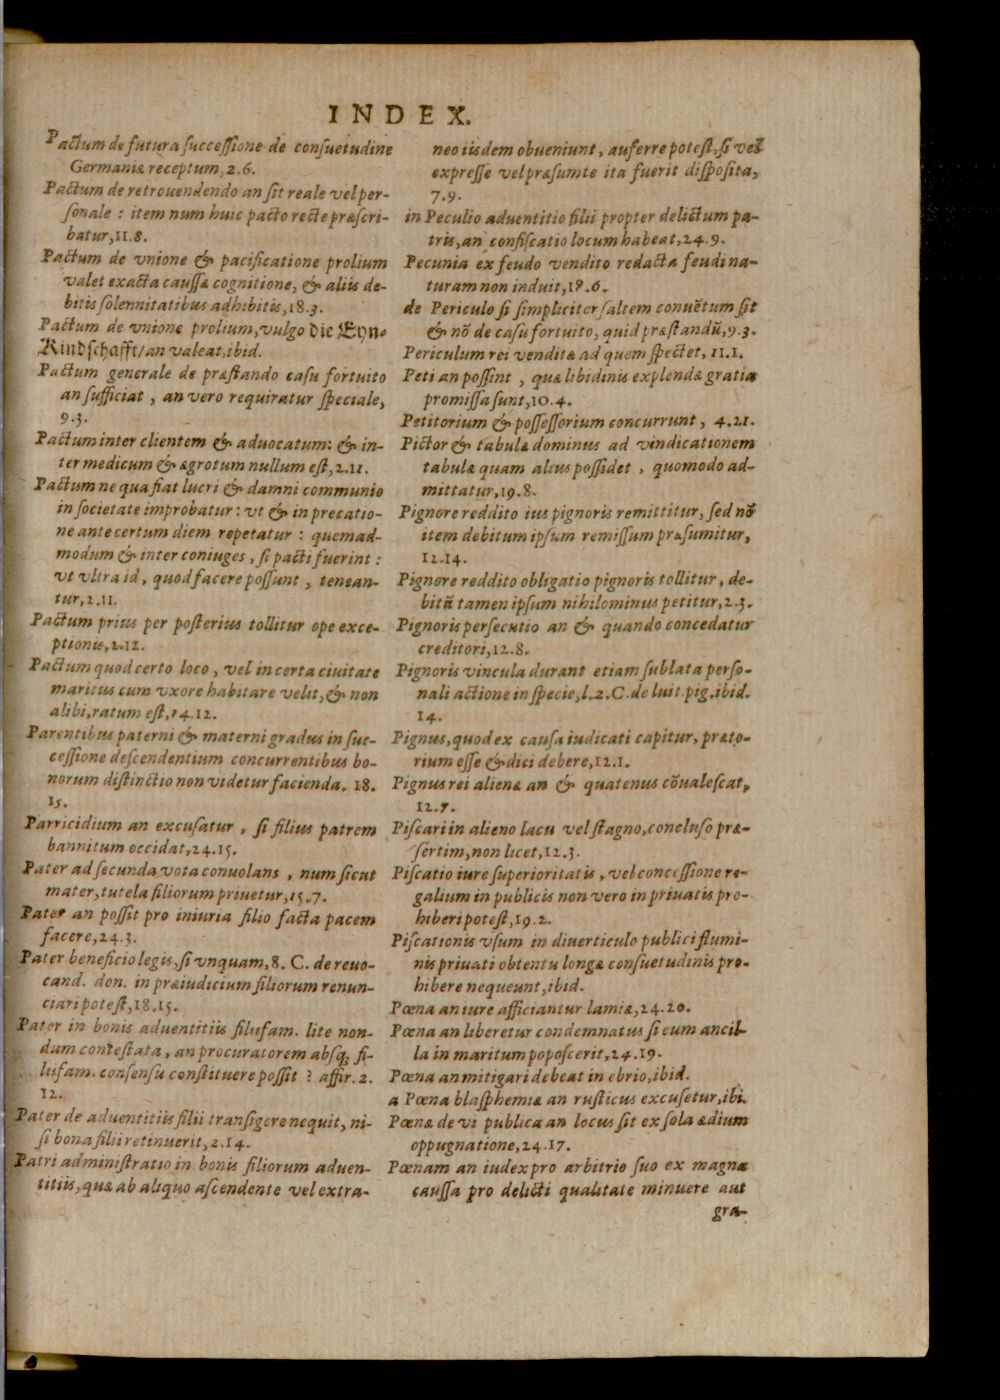 INDEX.
Pactum de futura successione de consuetudine
Germaniæ receptum, 2.6.
Pactum de retrouendendo an sit reale vel per-
sonale : item num huic pacto recte præscri-
batur, 11.8.
Pactum de vnione & pacificatione prolium
valet exacta caussæ cognitione, & aliis de-
bitis solennitatibus adhibitis, 18.3.
Pactum de vnione prolium, vulgo die Eyn-
Kindschafft/ an valeat, ibid.
Pactum generale de præstando casu fortuito
an sufficiat , an vero requiratur speciale,
9.3.
Pactum inter clientem & aduocatum: & in-
ter medicum & ægrotum nullum est, 2.11.
Pactum ne qua fiat lucri & damni communio
in societate improbatur : vt & in precatio-
ne ante certum diem repetatur : quemad-
modum & inter coniuges , si pacti fuerint :
vt vltra id , quod facere possunt , tenean-
tur, 2.11.
Pactum prius per posterius tollitur ope exce-
ptionis, 2.12.
Pactum quod certo loco , vel in certa ciuitate
maritus cum vxore habitare velit, & non
alibi, ratum est, 14.12.
Parentibus paterni & materni gradus in suc-
cessione descendentium concurrentibus bo-
norum distinctio non videtur facienda. 18.
15.
Parricidium an excusatur , si filius patrem
bannitum occidat, 24.15.
Pater ad secunda vota conuolans , num sicut
mater, tutela filiorum priuetur, 15.7.
Pater an possit pro iniuria filio facta pacem
facere, 24.3.
Pater beneficio legis, si vnquam, 8. C. de reuo-
cand. don. in præiudicium filiorum renun-
ciari potest, 18.15.
Pater in bonis aduentitiis filiifam. lite non-
dum contestata , an procuratorem absq; fi-
liifam. consensu constituere possit ? affir. 2.
12.
Pater de aduentitiis filii transigere nequit, ni-
si bona filii retinuerit, 2.14.
Patri administratio in bonis filiorum aduen-
titiis, quæ ab aliquo ascendente vel extra-
neo iisdem obueniunt , auferre potest, si vel
expresse vel præsumte ita fuerit disposita,
7.9.
in Peculio aduentitio filii propter delictum pa-
tris, an confiscatio locum habeat, 24.9.
Pecunia ex feudo vendito redacta feudi na-
turam non induit, 18.6.
de Periculo si simpliciter saltem conuētum sit
& nō de casu fortuito, quid præstandū, 9.3.
Periculum rei venditæ ad quem spectet, 11.1.
Peti an possint , quæ libidinis explendæ gratia
promissa sunt, 10.4.
Petitorium & possessorium concurrunt , 4.21.
Pictor & tabulæ dominus ad vindicationem
tabulæ quam alius possidet , quomodo ad-
mittatur, 19.8.
Pignore reddito ius pignoris remittitur, sed nō
item debitum ipsum remissum præsumitur,
12.14.
Pignore reddito obligatio pignoris tollitur , de-
bitū tamen ipsum nihilominus petitur, 2.3.
Pignoris persecutio an & quando concedatur
creditori, 12.8.
Pignoris vincula durant etiam sublata perso-
nali actione in specie, l.2. C. de luit. pig. ibid.
14.
Pignus, quod ex causa iudicati capitur, præto-
rium esse & dici debere, 12.1.
Pignus rei alienæ an & quatenus cōualescat,
12.7.
Piscari in alieno lacu vel stagno, concluso præ-
sertim, non licet, 12.3.
Piscatio iure superioritatis , vel concessione re-
galium in publicis non vero in priuatis pro-
hiberi potest, 19.2.
Piscationis vsum in diuerticulo publici flumi-
nis priuati obtentu longæ consuetudinis pro-
hibere nequeunt, ibid.
Pœna an iure afficiantur lamiæ, 24.20.
Pœna an liberetur condemnatus si eum ancil-
la in maritum poposcerit, 24.19.
Pœna an mitigari debeat in ebrio, ibid.
a Pœna blasphemiæ an rusticus excusetur, ibi.
Pœnæ de vi publica an locus sit ex sola ædium
oppugnatione, 24.17.
Pœnam an iudex pro arbitrio suo ex magna
caussa pro delicti qualitate minuere aut
gra-